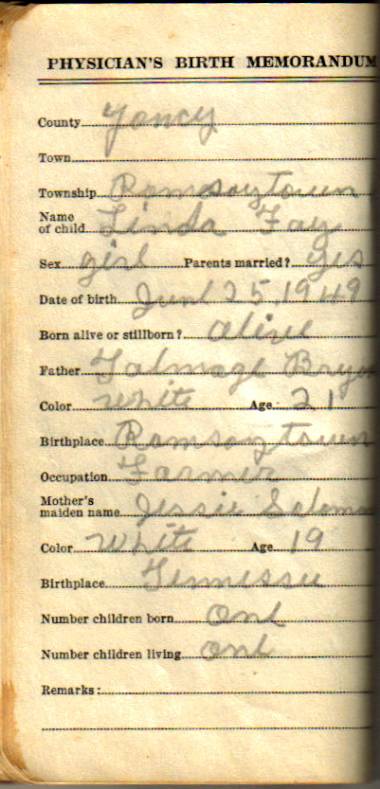 PHYSICIAN'S BIRTH MEMORANDUM
County Yancy
Town
Township Ramsaytown
Name of child Linda Fay
Sex girl Parents married? Yes
Date of birth June 25, 1949
Born alive or stillborn? alive
Father Talmage
Color White Age 21
Birthplace Ramsaytown
Occupation Farmer
Mother's maiden name Jessie
Color White Age 19
Birthplace Tennessee
Number children born one
Number children living one
Remarks: